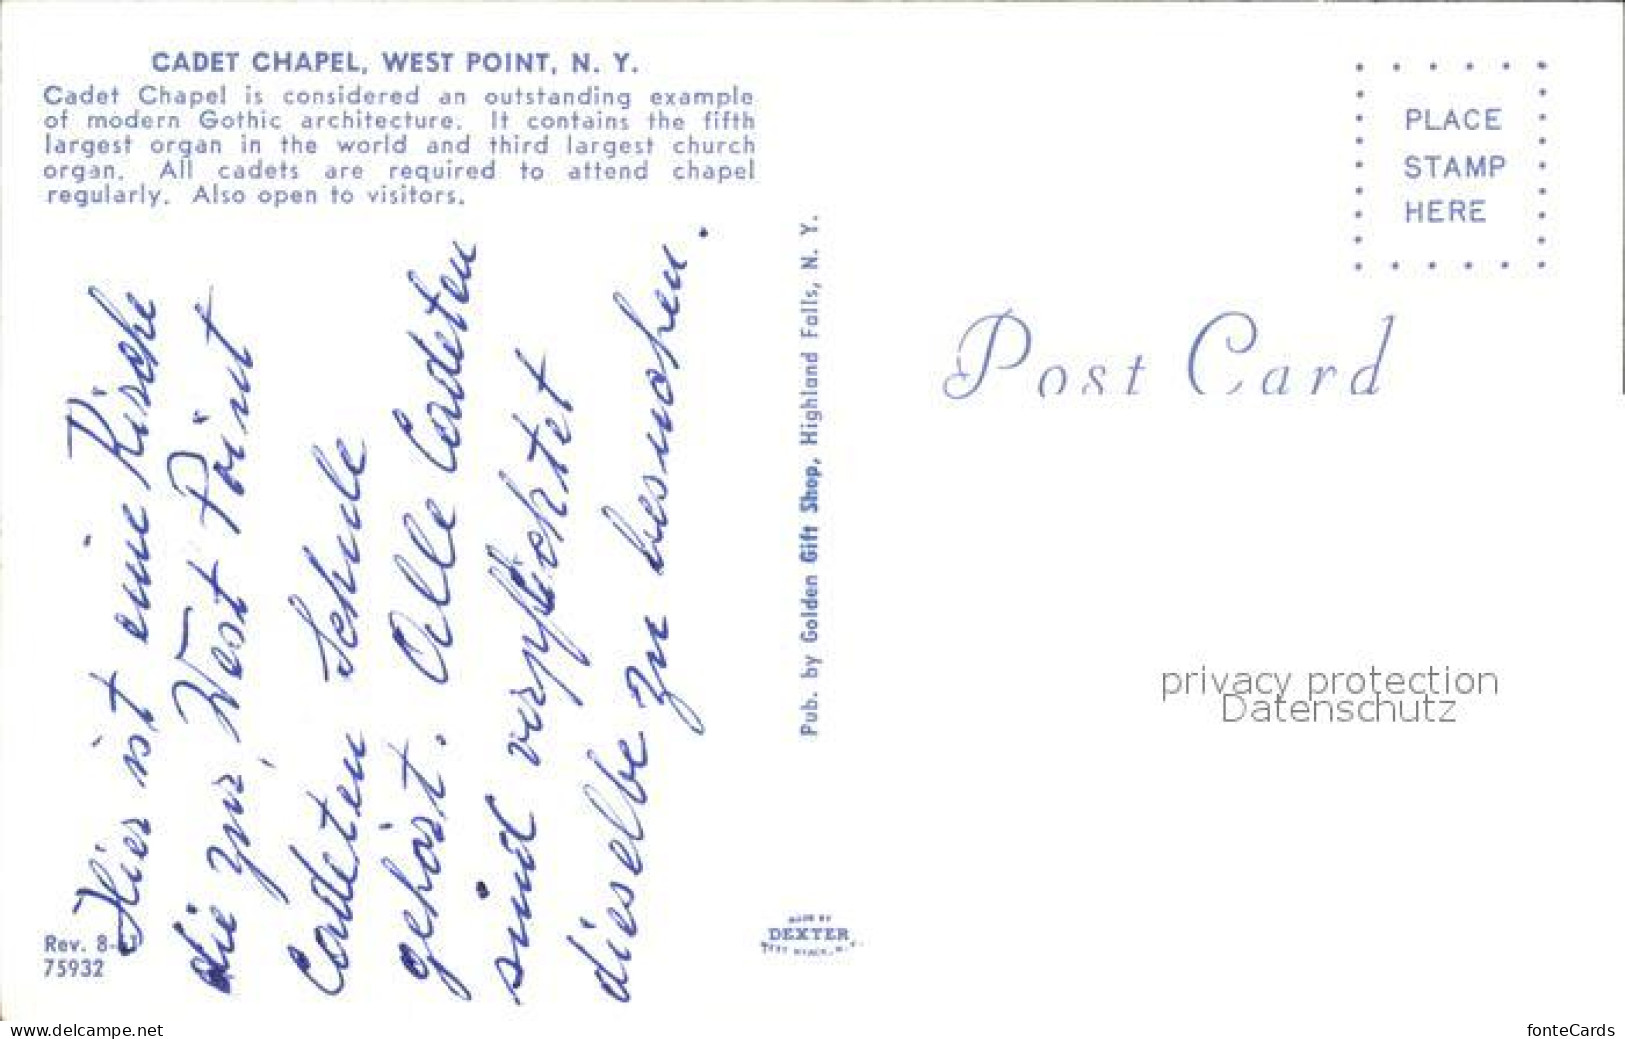 CADET CHAPEL, WEST POINT, N. Y.
Cadet Chapel is considered an outstanding example
of modern Gothic architecture. It contains the fifth
largest organ in the world and third largest church
organ. All cadets are required to attend chapel
regularly. Also open to visitors.
Hier ist eine Kirche
die zur West Point
Cadeten Schule
gehört. Alle Cadeten
sind verpflichtet
dieselbe zu besuchen.
Rev. 8-
75932
Pub. by Golden Gift Shop, Highland Falls, N. Y.
MADE BY
DEXTER
WEST NYACK, N. Y.
PLACE
STAMP
HERE
Post Card
privacy protection
Datenschutz
www.delcampe.net
fonteCards